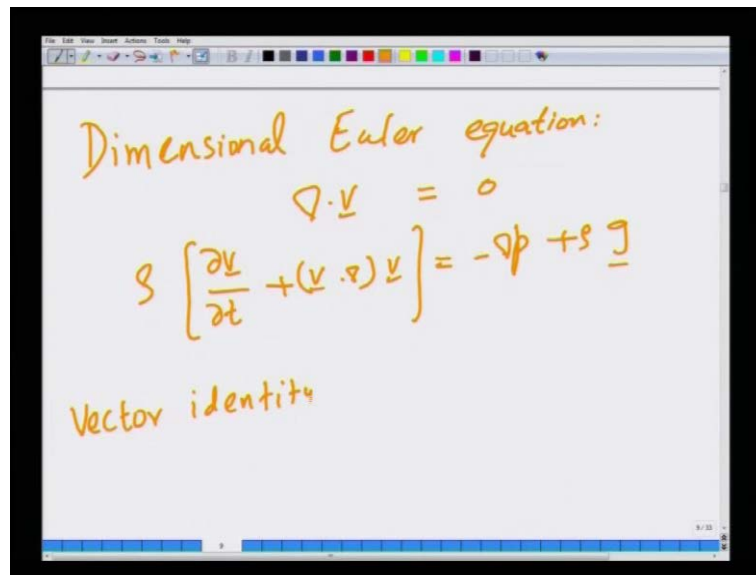 File Edit View Insert Actions Tools Help
B I
Dimensional Euler equation:
∇·v = 0
ρ [∂v/∂t + (v·∇) v] = -∇p + ρ g
Vector identity
9/33
9